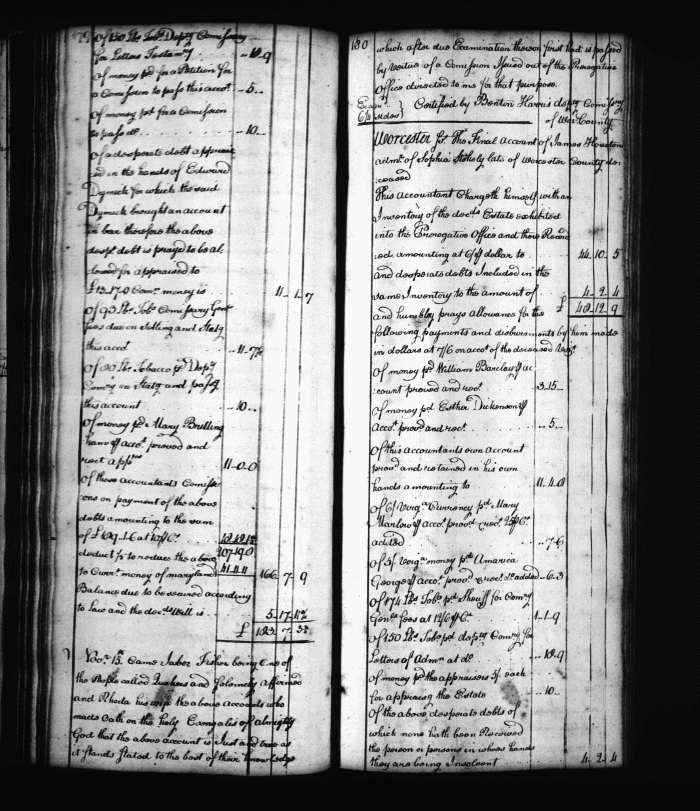 of 150 lbs Tobo Depty Comissary
for Letters Testamy .. 18.9
Of money pd for a Petition for
a Comission to pass this acct .. 5..
Of money pd for a Comission
to pass do .. 10..
Of a desperate debt apprais
ed in the hands of Edward
Dymuck for which the said
Dymuck brought an account
in bar therefore the above
despt debt is prayed to be al:
lowed for appraised to
£13.17.0 Comn money is 11..1..7
Of 93 lbs Tobo Comissary Genl
fees due on Setling and Statg
this acct .. 11..7½
Of 80 lbs Tobacco pd Depty
Comry on Statg and passg
this account .. 10..
Of money pd Mary Brilling
ham acct proved and
rect appr 11..0..0
Of these Accountants Comiss
ons on payment of the above
debts amounting to the sum
of £
deduct to reduce the above
to Currt money of maryland 166 7 9
Balance due to be secured according
to Law and the decds Will is 5..17..
£
Novr 15th Came Jabez Fisher being One of
the People called Quakers and Solemnly affirmed
and Rhoda his wife the above Accountants who
made Oath on the holy Evangelis of Almighty
God that the above account is Just and true as
it stands Stated to the best of their knowledge
180
which after due Examination thereon first had is passed
by virtue of a Comission Issued out of the Prerogative
Office directed to me for that purpose.
Certified by Benton Harris depty Comissry
of Worr County
Worcester Ss. The Final Account of James Houston
Admr of Sophia Stokely late of Worcester County de:
ceased
This Accountant Chargeth himself with an
Inventory of the decds Estate exhibited
into the Prerogative Office and there Recor
ded amounting at 6/ dollar to .. 44..10..5
And desperate debts Included in the
same Inventory to the amount of 4..2..4
and humbly prays allowance for the £ 48..12..9
following payments and disbursments by him made
in dollars at 7/6 on acct of the deceased
Of money pd William Barclay ac
:count proved and rect .. 3.15..
Of money pd Esther Dickenson
Acct provd and rect .. 5..
Of this Accountants own Account
provd and retained in his own
hands amounting to .. 11..4..
Of 6/ Virga Currency pd Mary
Marlow acct provd & rect
added .. 7..6
Of 5/ Virga money pd America
George acct provd & rect added .. 6..3
Of 174 lbs Tobo pd Sheriff for Comry
Genls fees at 12/6 1..1..9
Of 150 lbs Tobo pd depty Comry for
Letters of Admr at do .. 18..9
Of money pd the appraisers 5/ each
for appraising the Estate .. 10..
Of the above desperate debts of
which none hath been Received
the person or persons in whose hands
they are being Insolvent 4..2..4